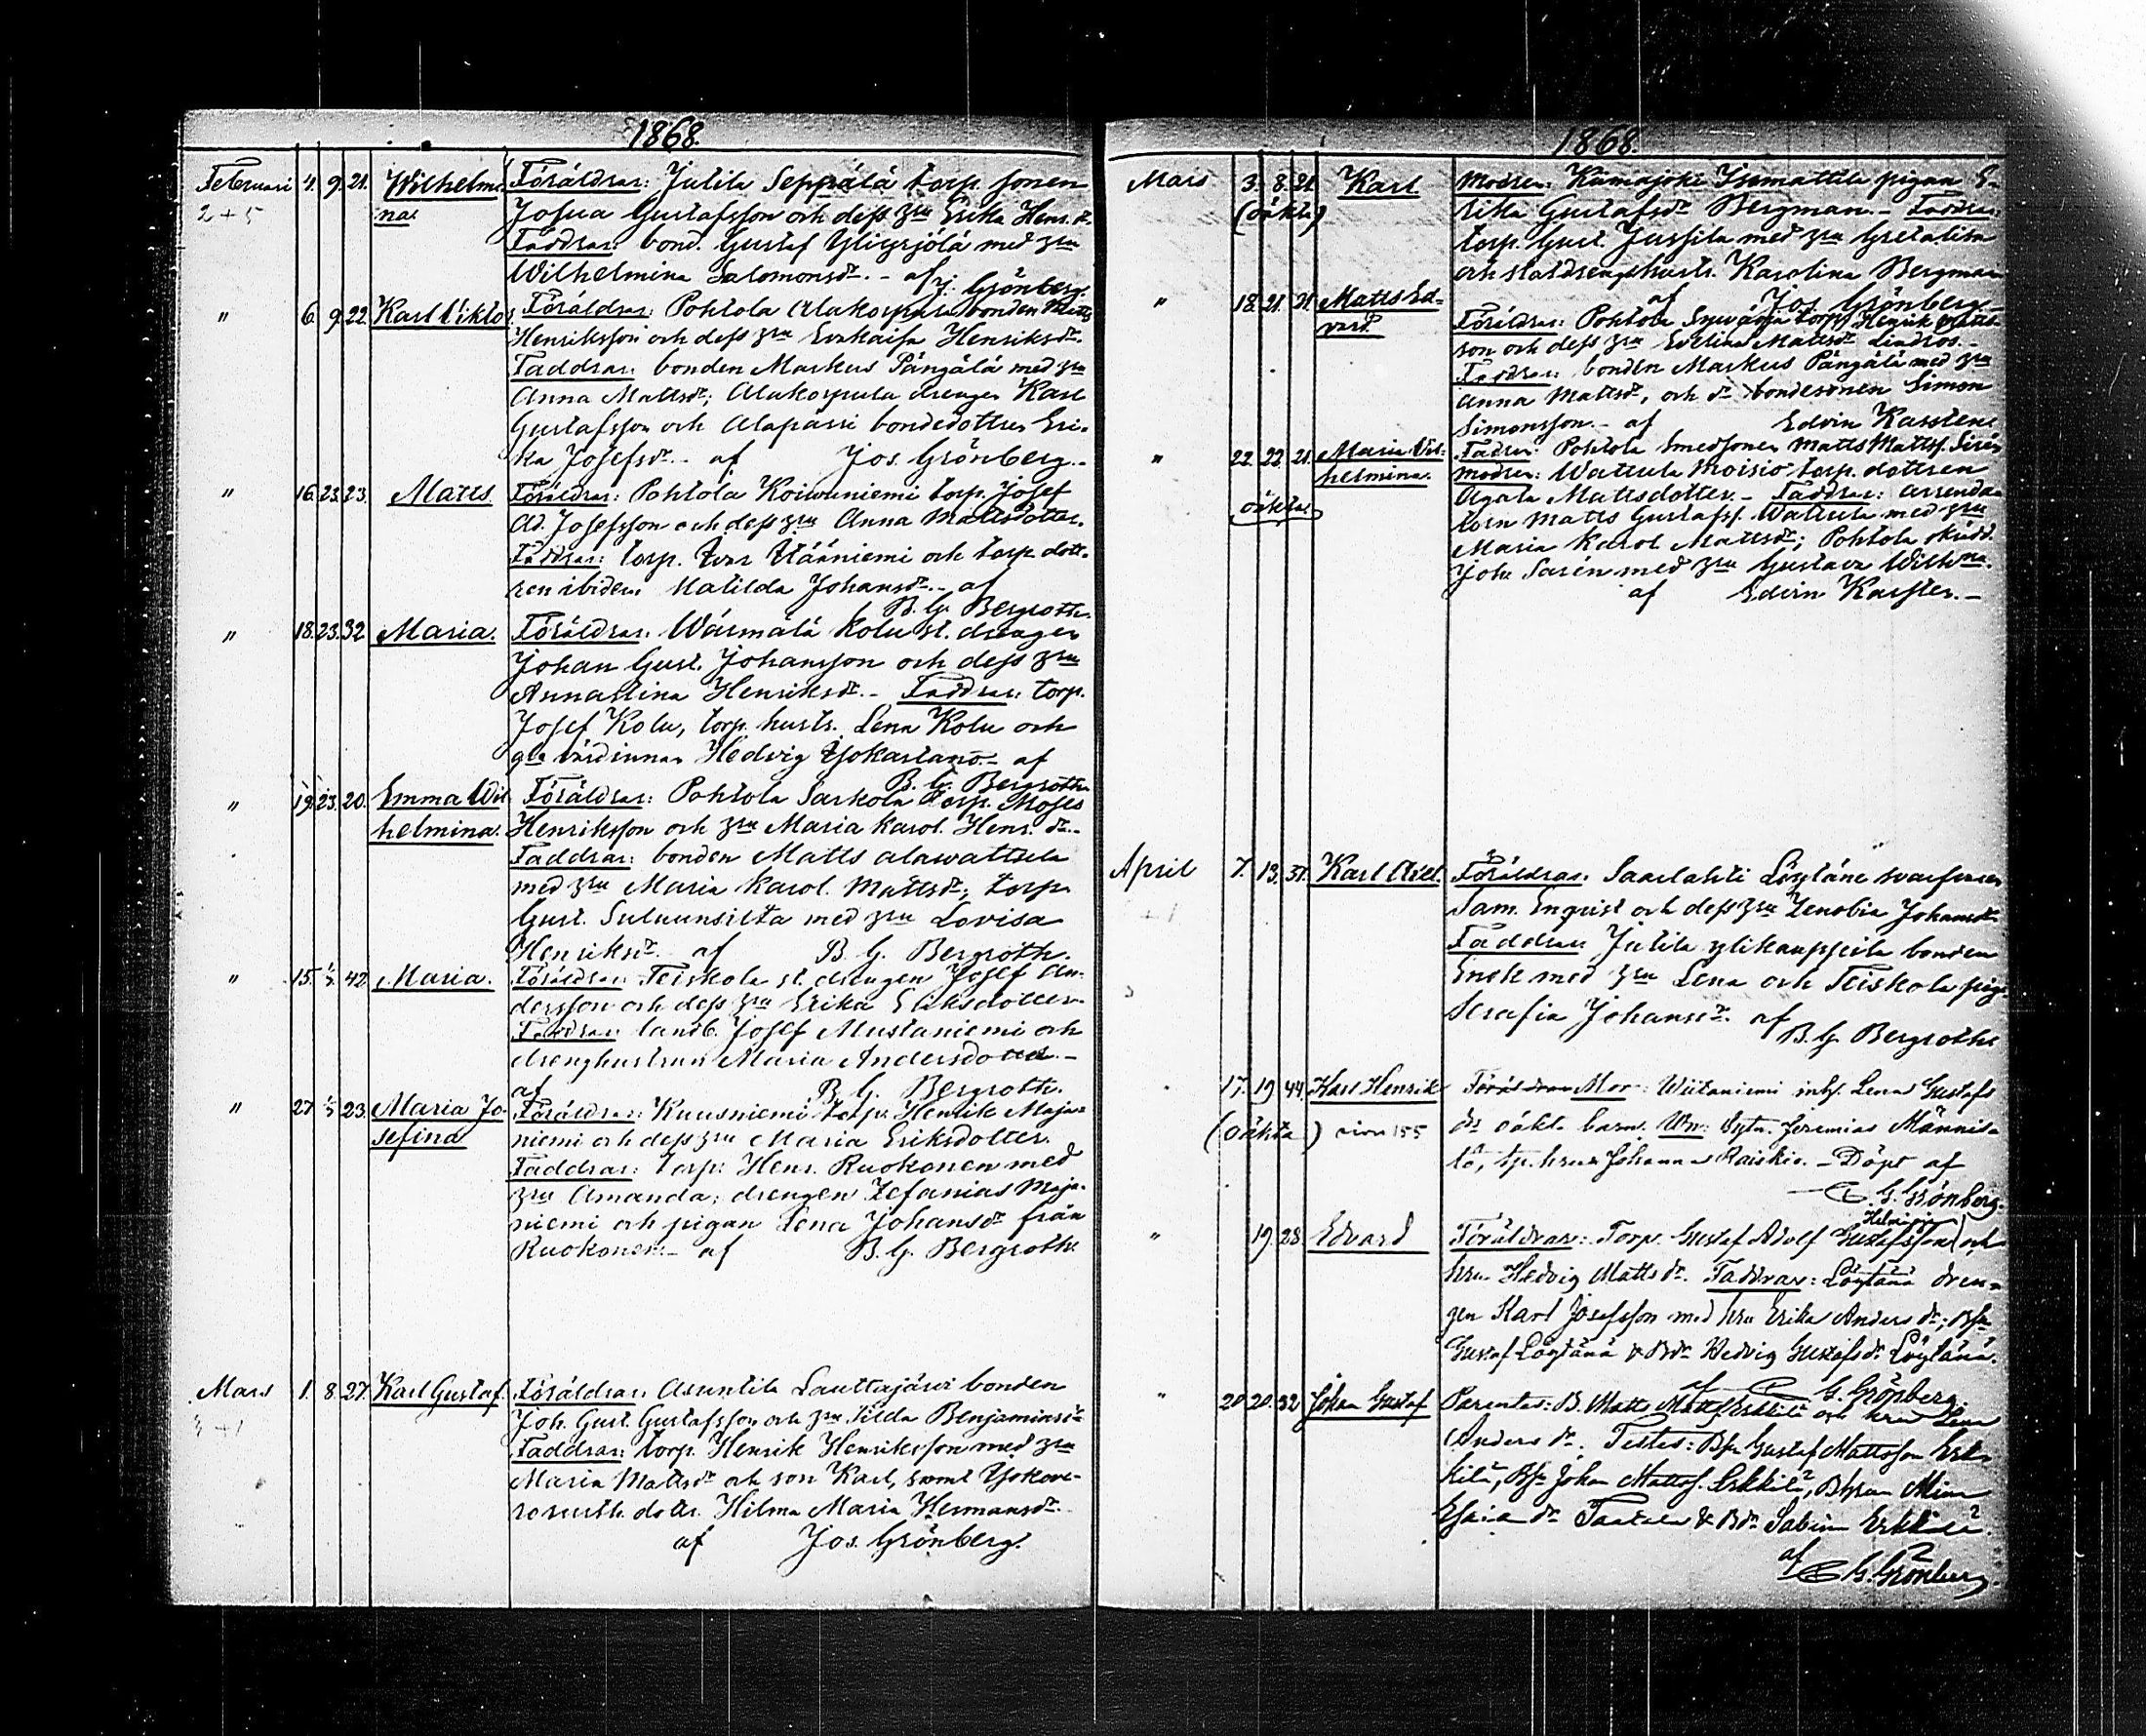 1868.
Februari 4. 9. 21. Wilhelmi- Föräldrar: Jutila Seppälä torp. sonen
2+5 na Josua Gustafsson och dess hru Erika Henr. dr.
Faddrar: bond. Gustaf Yligrjölä med hru
Wilhelmina Salomonsdr. - af J. Grönberg.
" 6. 9. 22. Karl Viktor. Föräldrar: Pohtola Alakorpula bonden Matts
Henriksson och dess hru Evakaisa Henriksdr.
Faddrar: bonden Markus Pängälä med hru
Anna Mattsdr; Alakorpula drengen Karl
Gustafsson och Alapassi bondedottren Eri-
ka Josefsdr. - af Jos. Grönberg. -
" 16. 23. 23. Matts. Föräldrar: Pohtola Koivuniemi torp. Josef
Ad. Josefsson och dess hru Anna Mattsdotter.
Faddrar: torp. Ivar Hääniemi och torp. dott-
ren ibidem Matilda Johansdr. - af
B. G. Bergroth.
" 18. 23. 32. Maria. Föräldrar: Wärmälä Kolu st. drengen
Johan Gust. Johansson och dess hru
Annastina Henriksdr. - Faddrar: torp.
Josef Kolu, torp. hustr. Lena Kolu och
gla värdinnan Hedvig Yjokartano. - af
B. G. Bergroth
" 19. 23. 20. Emma Wil- Föräldrar: Pohtola Sarkola torp. Moses
helmina. Henriksson och hru Maria Karol. Henr. dr. -
Faddrar: bonden Matts Alawattula
med hru Maria Karol. Mattsdr; torp.
Gust. Suluunsilta med hru Lovisa
Henriksdr. af B. G. Bergroth.
" 15. 1/3. 42. Maria. Föräldrar: Teiskola st. drengen Josef An-
dersson och dess hru Erika Eriksdotter
Faddrar: landb. Josef Mustaniemi och
drenghustrun Maria Andersdotter. -
af B. G. Bergroth.
" 27. 1/3. 23. Maria Jo- Föräldrar: Kuusniemi torp. Henrik Maja-
sefina niemi och dess hru Maria Eriksdotter.
Faddrar: torp. Henr. Ruokonen med
hru Amanda; drengen Zefanias Maja-
niemi och pigan Lena Johansdr från
Ruokonen. - af B. G. Bergroth.
Mars 1. 8. 27. Karl Gustaf. Föräldrar: Asuntila Lauttajärvi bonden
3+1 Joh. Gust. Gustafsson och hru Tilda Benjaminsdr
Faddrar: torp. Henrik Henriksson med hru
Maria Mattsdr och son Karl, samt
dottr. Hilma Maria Hermansdr.
af Jos. Grönberg.
1868.
Mars 3. 8. 21. Karl Modren: Kiimajoki Isomattila pigan E-
(oäkta) rika Gustafsdr Bergman. - Faddrar:
torp. Gust. Jussila med hru Gretalisa
och statdrengshustr. Karolina Bergman
af Jos. Grönberg
" 18. 21. 21. Matts Ed- Föräldrar: Pohtola torp. Henrik Matts-
vard. son och dess hru Evelina Mattsdr Lindros. -
Faddrar: bonden Markus Pängälä med hru
Anna Mattsdr, och dr bondesonen Simon
Simonsson. - af Edvin Karsten.
" 22. 22. 21. Maria Wil- Fadren: Pohtola Smedsonen Matts Mattss. Sirén
helmina. modren: Wattula Moisio torp. dottren
(oäkta) Agata Mattsdotter. - Faddrar: arrenda-
torn Matts Gustafs. Wattula med hru
Maria Karol. Mattsdr; Pohtola skräd.
Joh. Sarén med hru Gustava Wilhna.
af Edvin Karsten. -
April 7. 13. 31. Karl Axel. Föräldrar: Saarlahti Löytäne svarfvaren
+1 Sam. Enqvist och dess hru Zenobia Johansdr
Faddrar: Jutila ylikauppila bonden
Enok med hru Lena och Teiskola pig.
Serafia Johansdr. af
B. G. Bergroth
17. 19. 44. Karl Henrik Mor: Wiitaniemi inhs. Lena Gustafs
(oäkta) dr oäkta barn. Wn: Jeremias Männis-
tö, Johanna Raiskio. - Döpt af
G. Grönberg.
" 19. 28. Edvard Föräldrar: Torp. Gustaf Adolf Gustafsson och
hru Hedvig Mattsdr. Faddrar: Löytänä dren-
gen Karl Josefsson med hru Erika Andersdr; Bsn
Gustaf Löytänä & Bdr Hedvig Gustafsdr Löytänä.
af G. Grönberg.
" 20. 20. 32. Johan Gustaf Parentes: B. Matts Matts. Erkkilä och hru Lena
Andersdr. Testes: Bsn Gustaf Mattsson Erk-
kilä, Bsn Johan Mattss. Erkkilä, Mina
Esaiædr & Bdr Sabina Erkkilä.
af G. Grönberg.